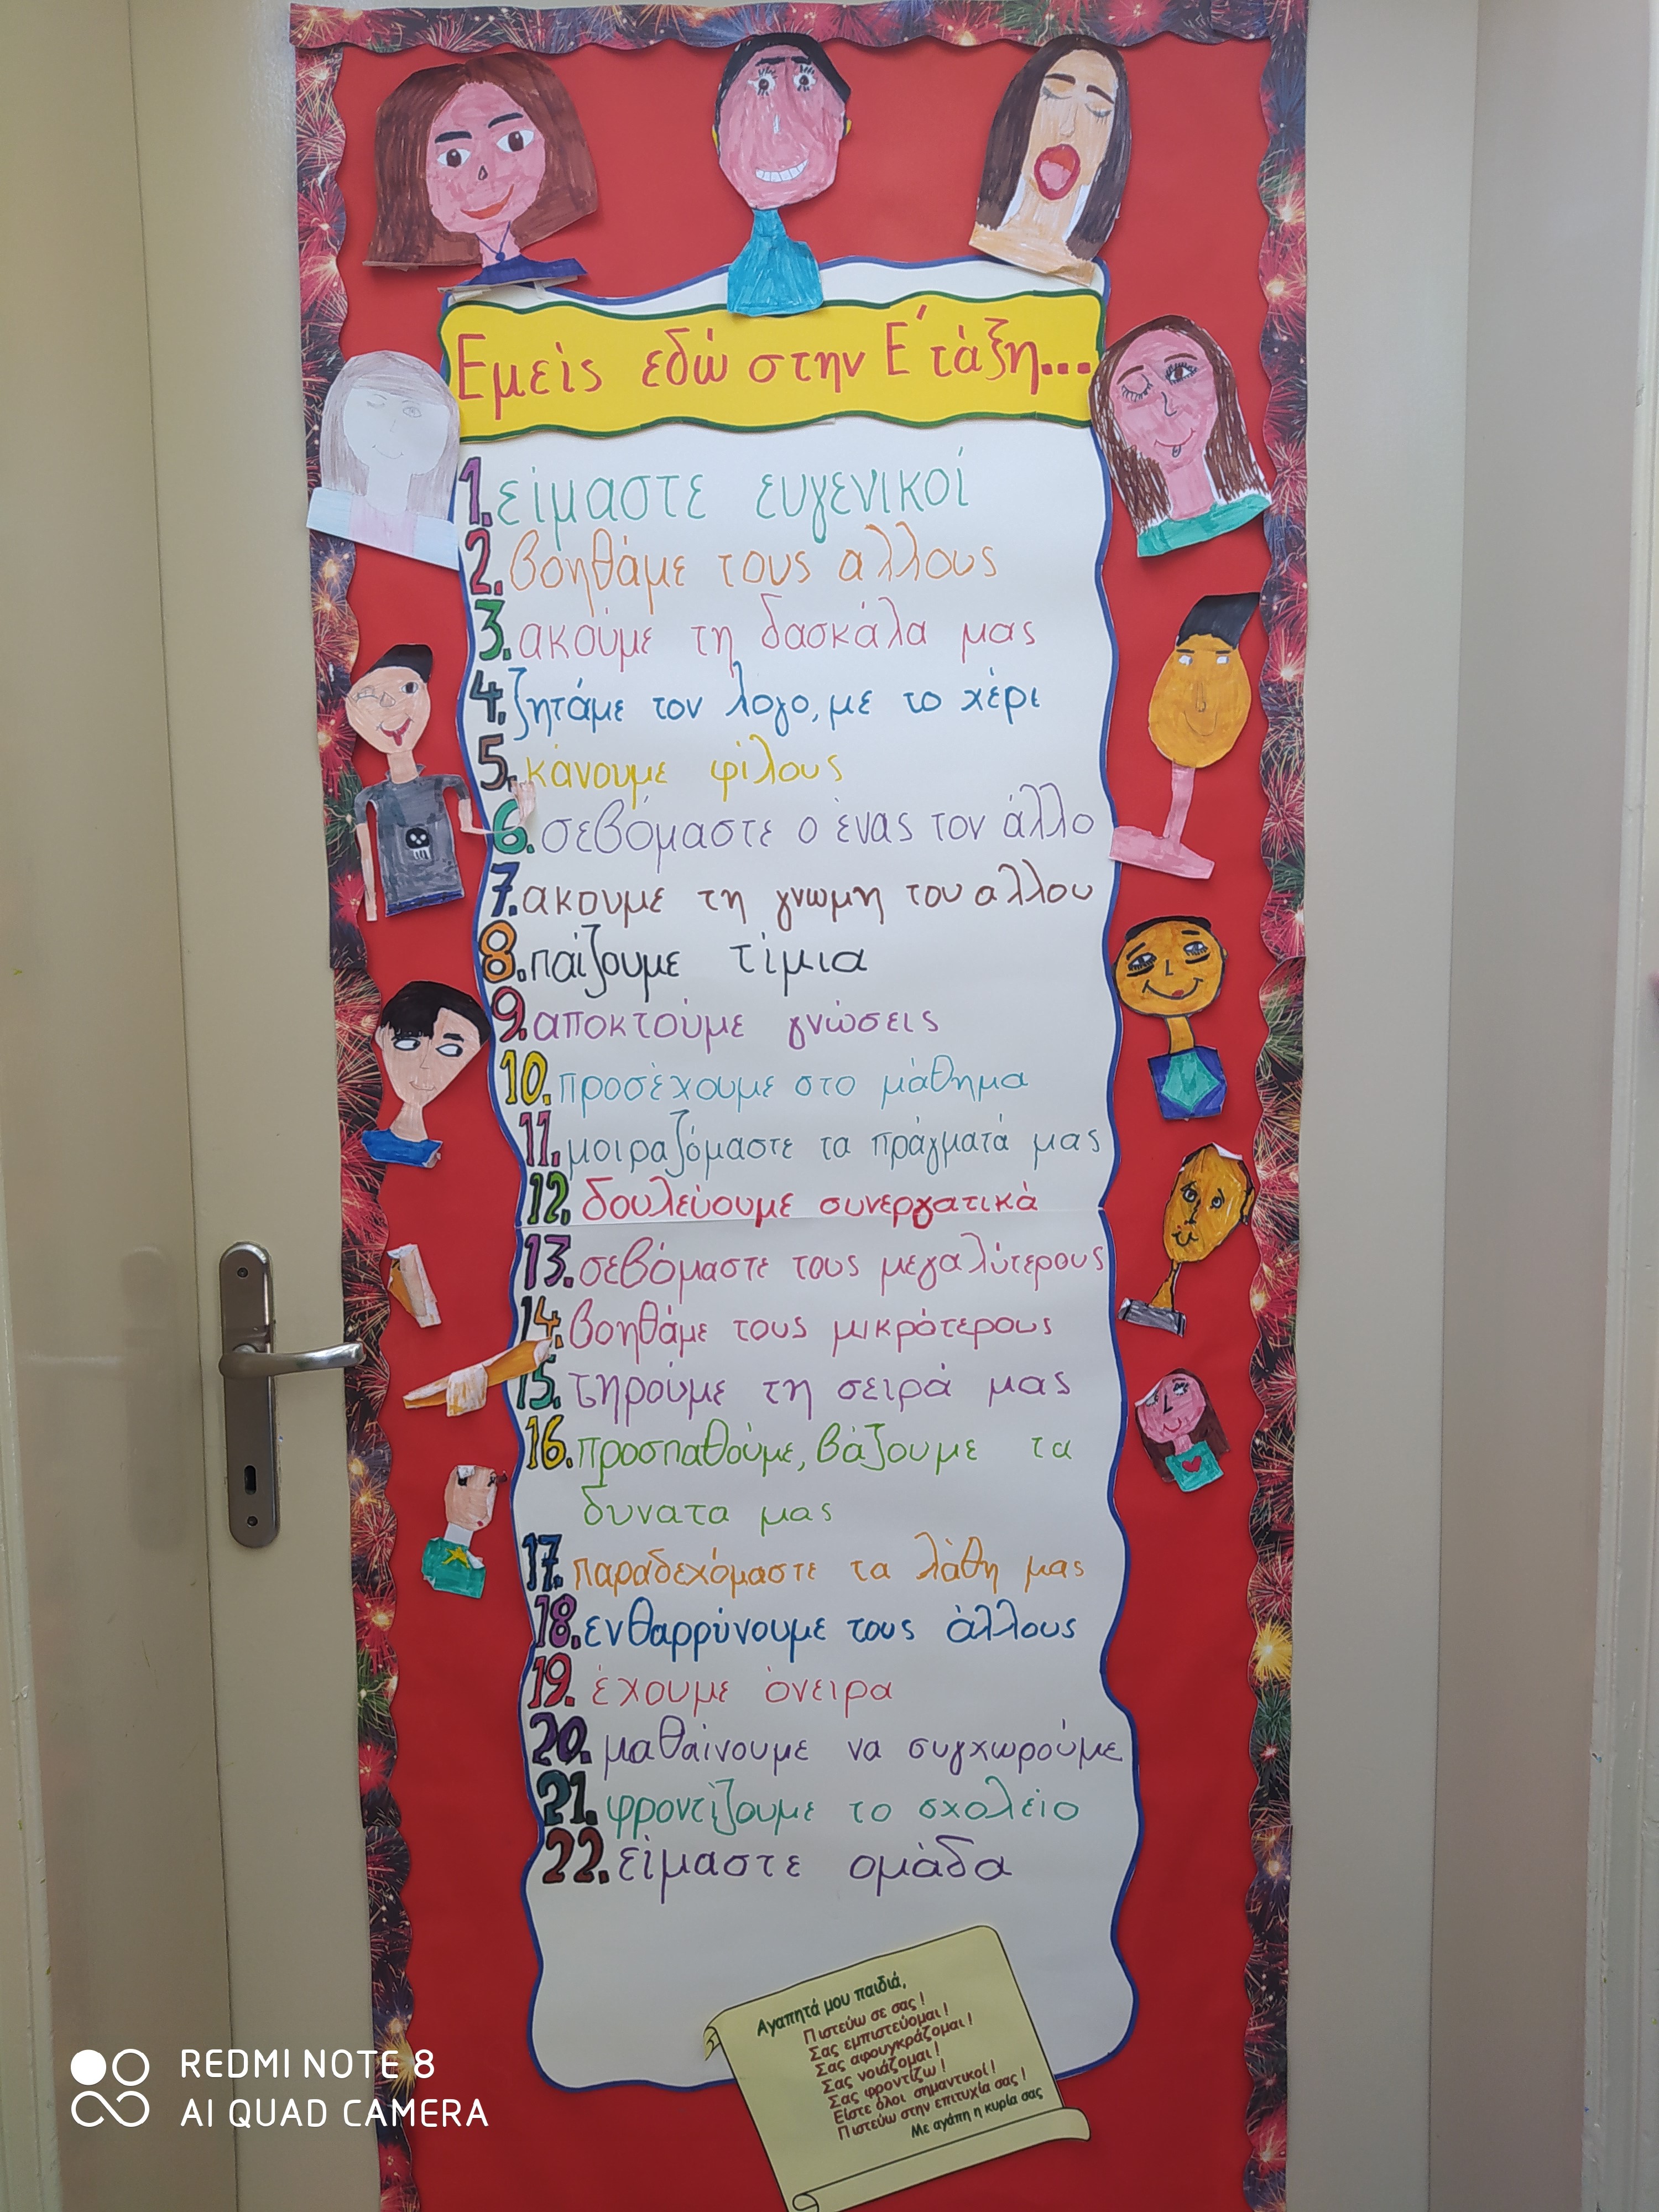 Εμείς εδώ στην Ε΄ τάξη...
1. είμαστε ευγενικοί
2. βοηθάμε τους αλλους
3. ακούμε τη δασκάλα μας
4. ζητάμε τον λογο, με το χέρι
5. κάνουμε φίλους
6. σεβόμαστε ο ένας τον άλλο
7. ακουμε τη γνωμη του αλλου
8. παίζουμε τίμια
9. αποκτούμε γνώσεις
10. προσέχουμε στο μάθημα
11. μοιραζόμαστε τα πράγματά μας
12. δουλεύουμε συνεργατικά
13. σεβόμαστε τους μεγαλύτερους
14. βοηθάμε τους μικρότερους
15. τηρούμε τη σειρά μας
16. προσπαθούμε, βάζουμε τα
δυνατα μας
17. παραδεχόμαστε τα λάθη μας
18. ενθαρρύνουμε τους άλλους
19. έχουμε όνειρα
20. μαθαίνουμε να συγχωρούμε
21. φροντίζουμε το σχολείο
22. είμαστε ομάδα
Αγαπητά μου παιδιά,
Πιστεύω σε σας !
Σας εμπιστεύομαι !
Σας αφουγκράζομαι !
Σας νοιάζομαι !
Σας φροντίζω !
Είστε όλοι σημαντικοί !
Πιστεύω στην επιτυχία σας !
Με αγάπη η κυρία σας
REDMI NOTE 8
AI QUAD CAMERA